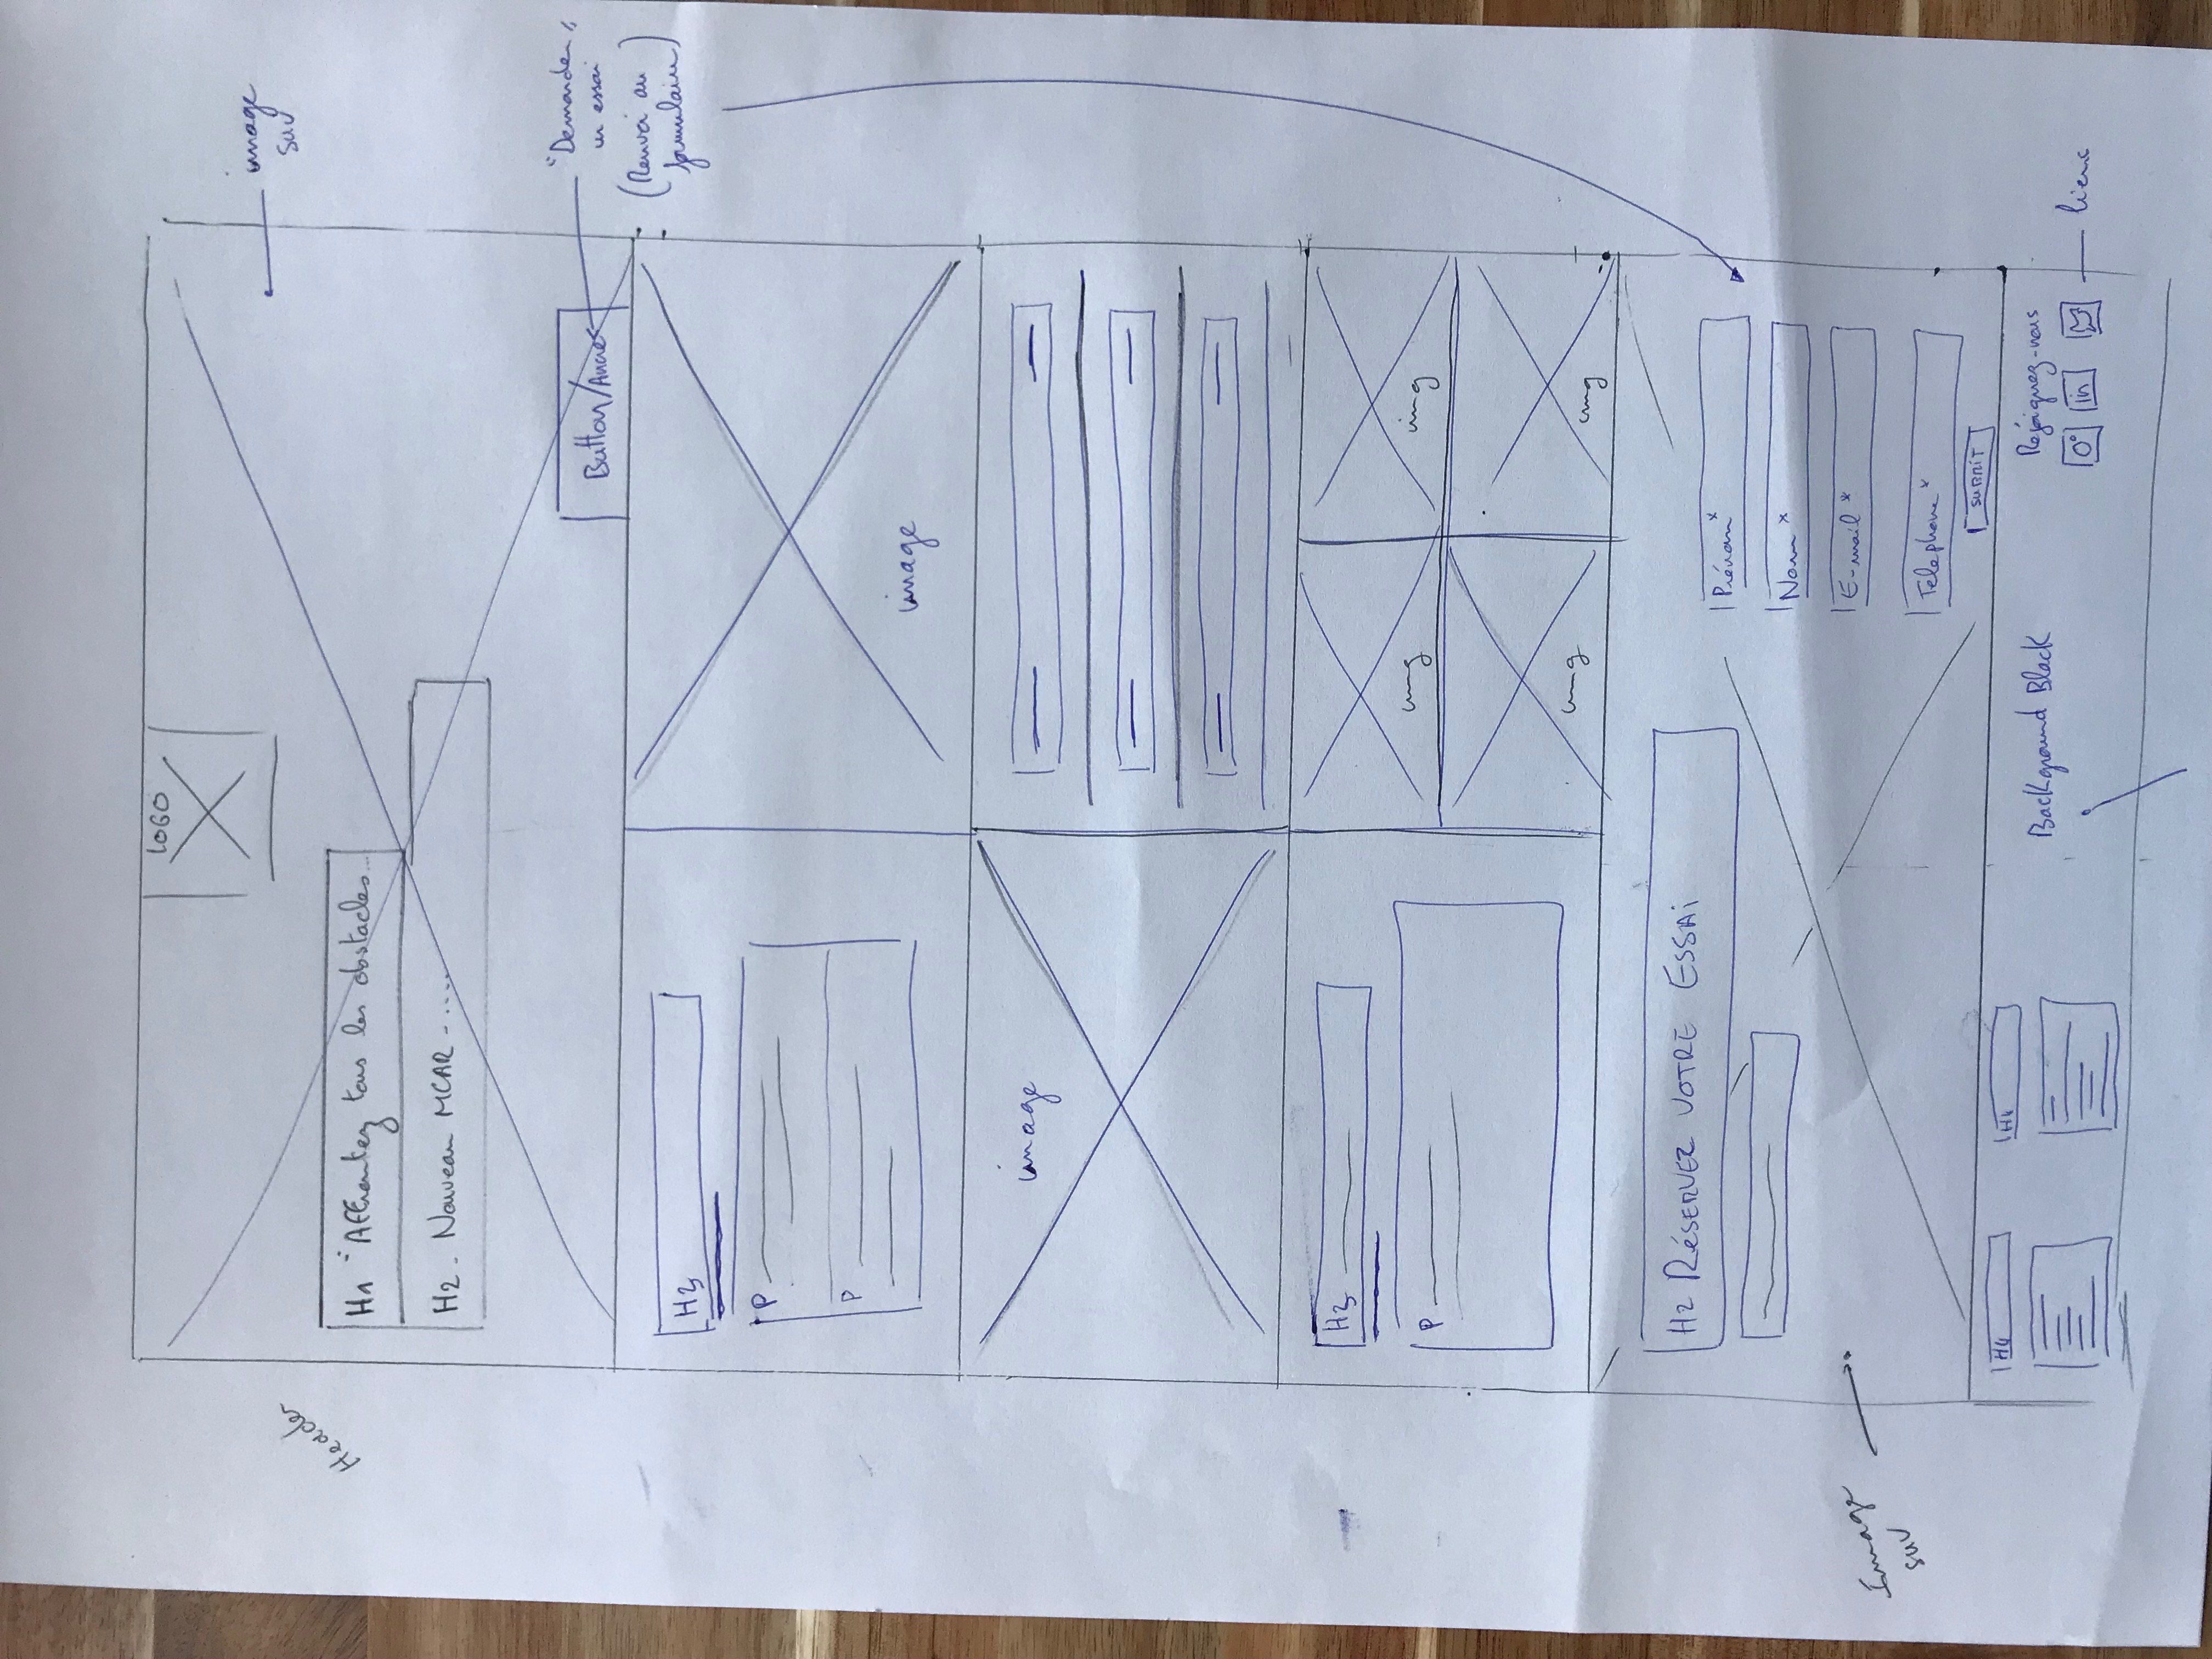 LOGO
image
SUV
Header
H1 "Affrontez tous les obstacles...
H2. Nouveau MCAR - .....
"Demander"
un essai
Button/Ancre
(Renvoi au
formulaire)
H3
P
P
image
image
H3
P
img
img
img
img
H2 RÉSERVEZ VOTRE ESSAi
Prénom*
Nom *
E-mail *
Telephone*
SUBMIT
Image
SUV
H4
H4
Background Black
Rejoignez-nous
in
liens